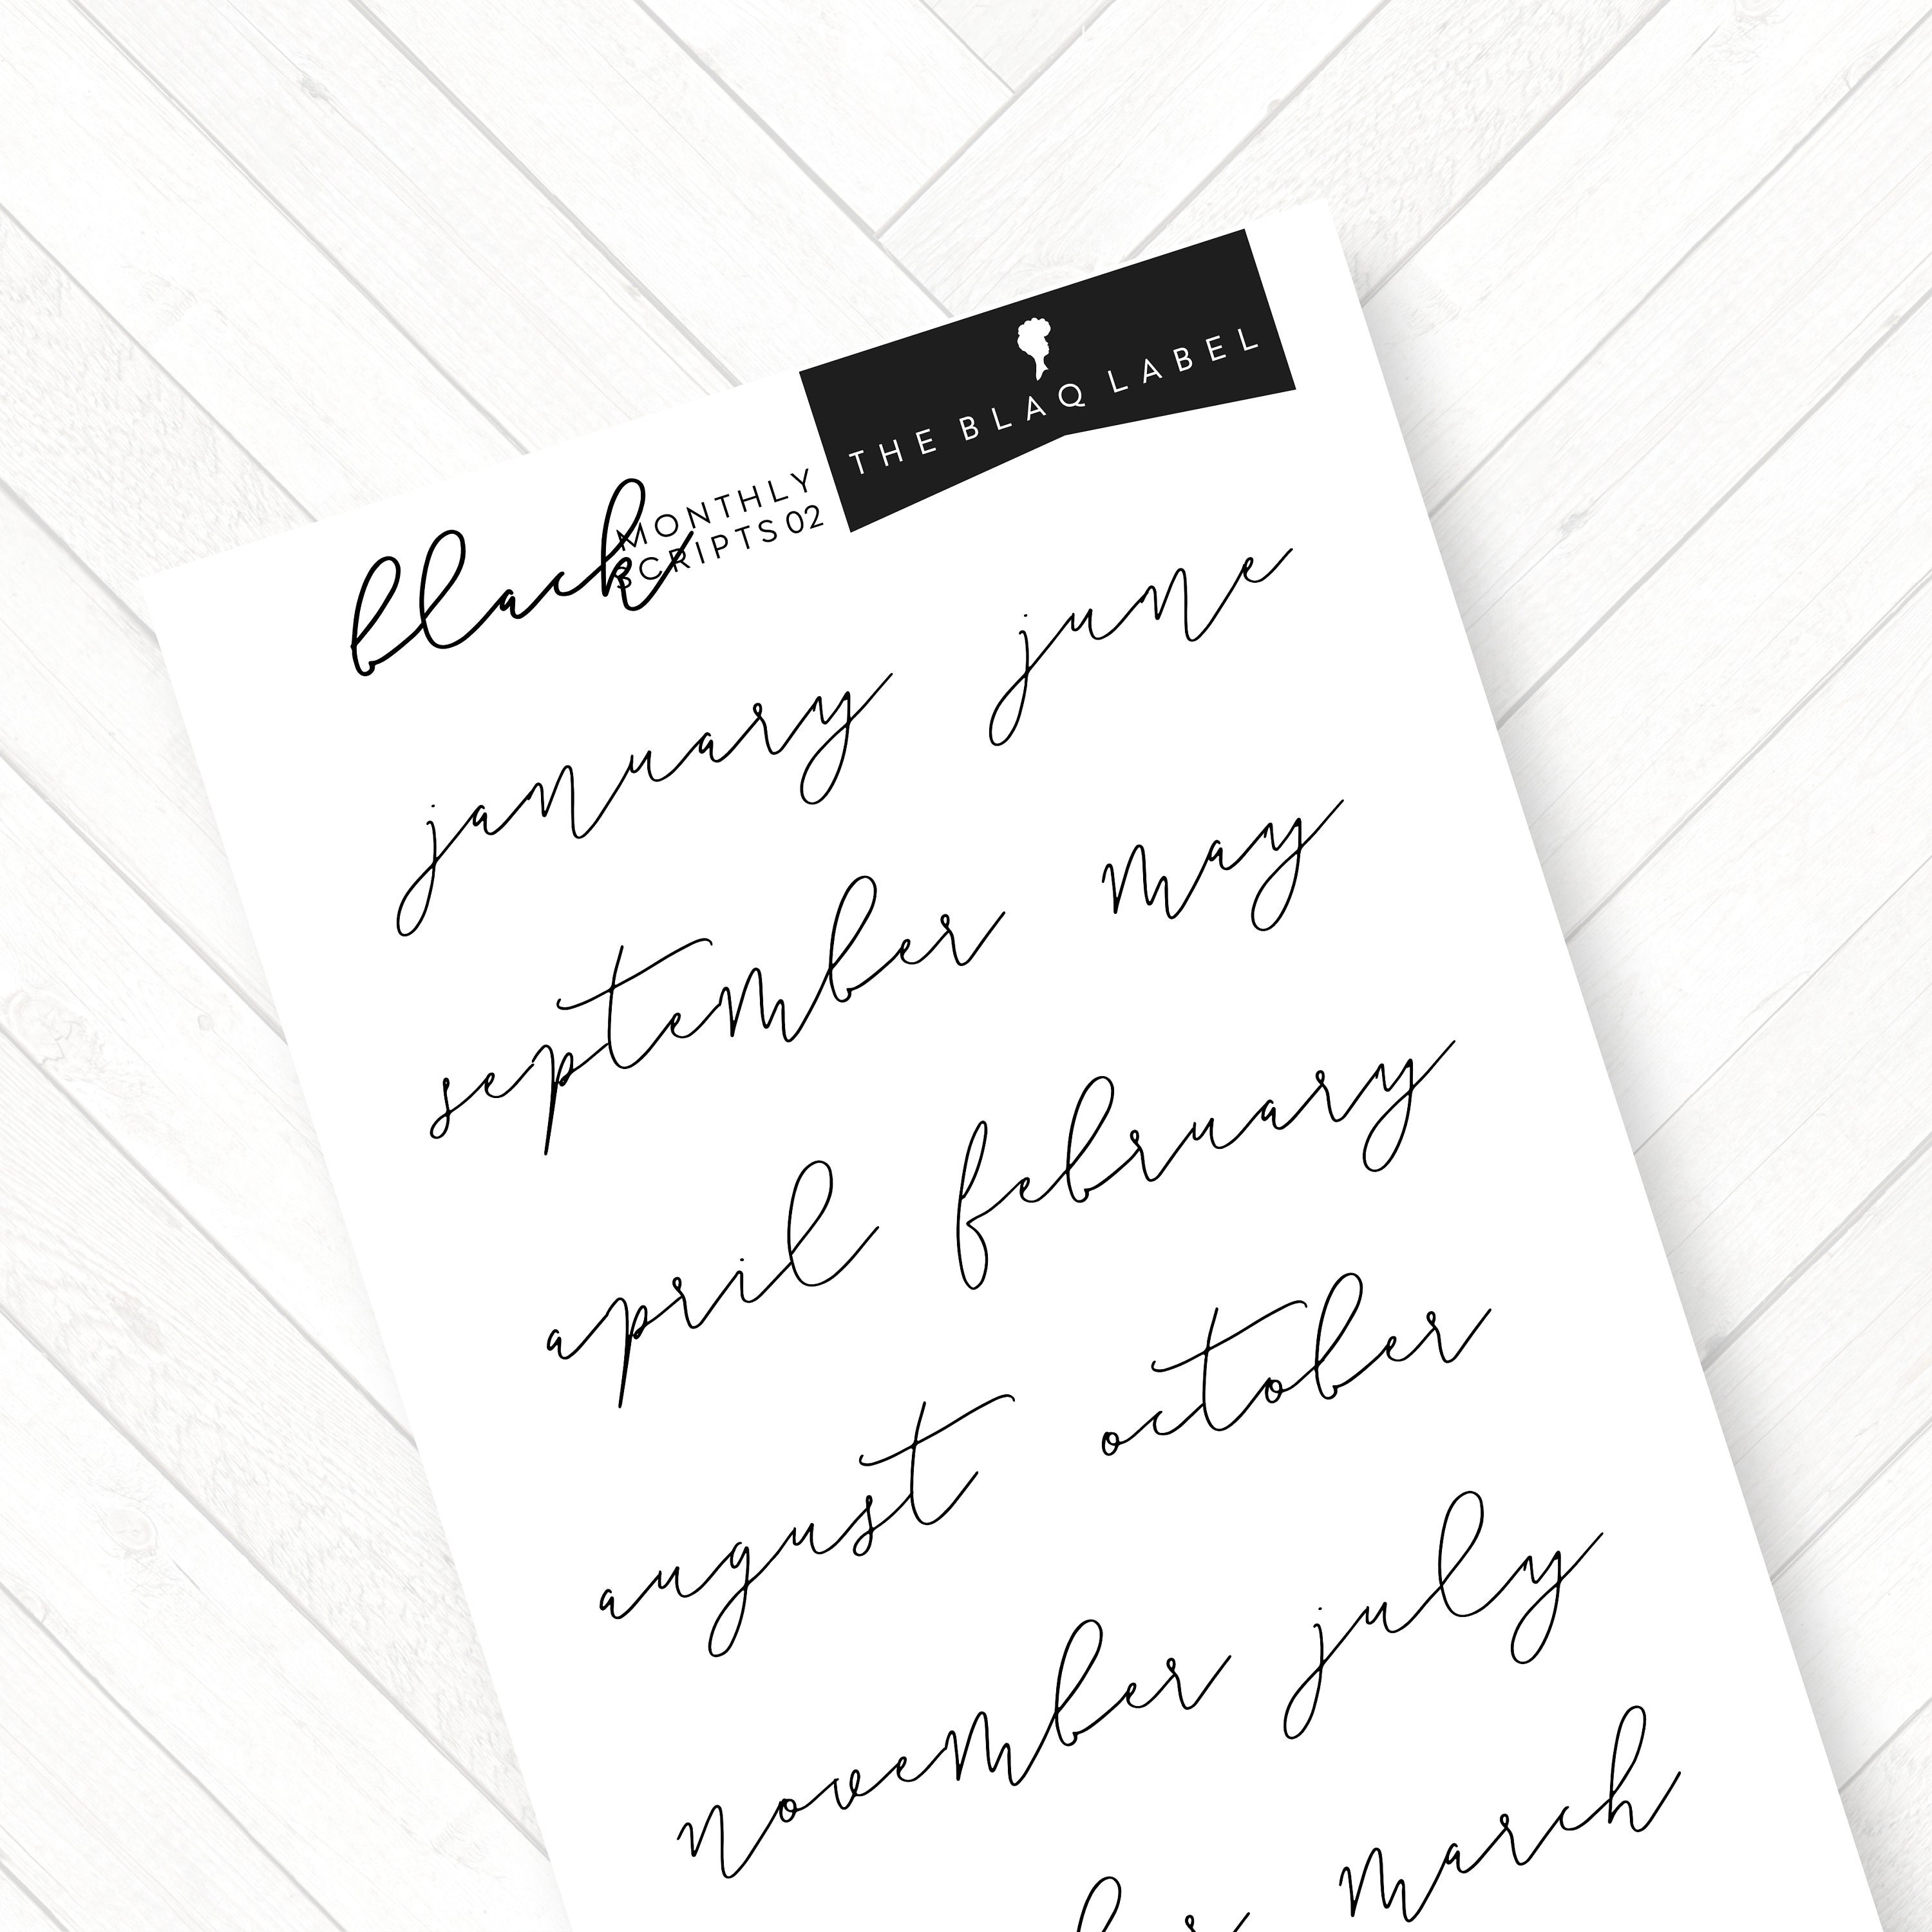 THE BLAQ LABEL
black
MONTHLY
SCRIPTS 02
january june
september may
april february
august october
november july
march